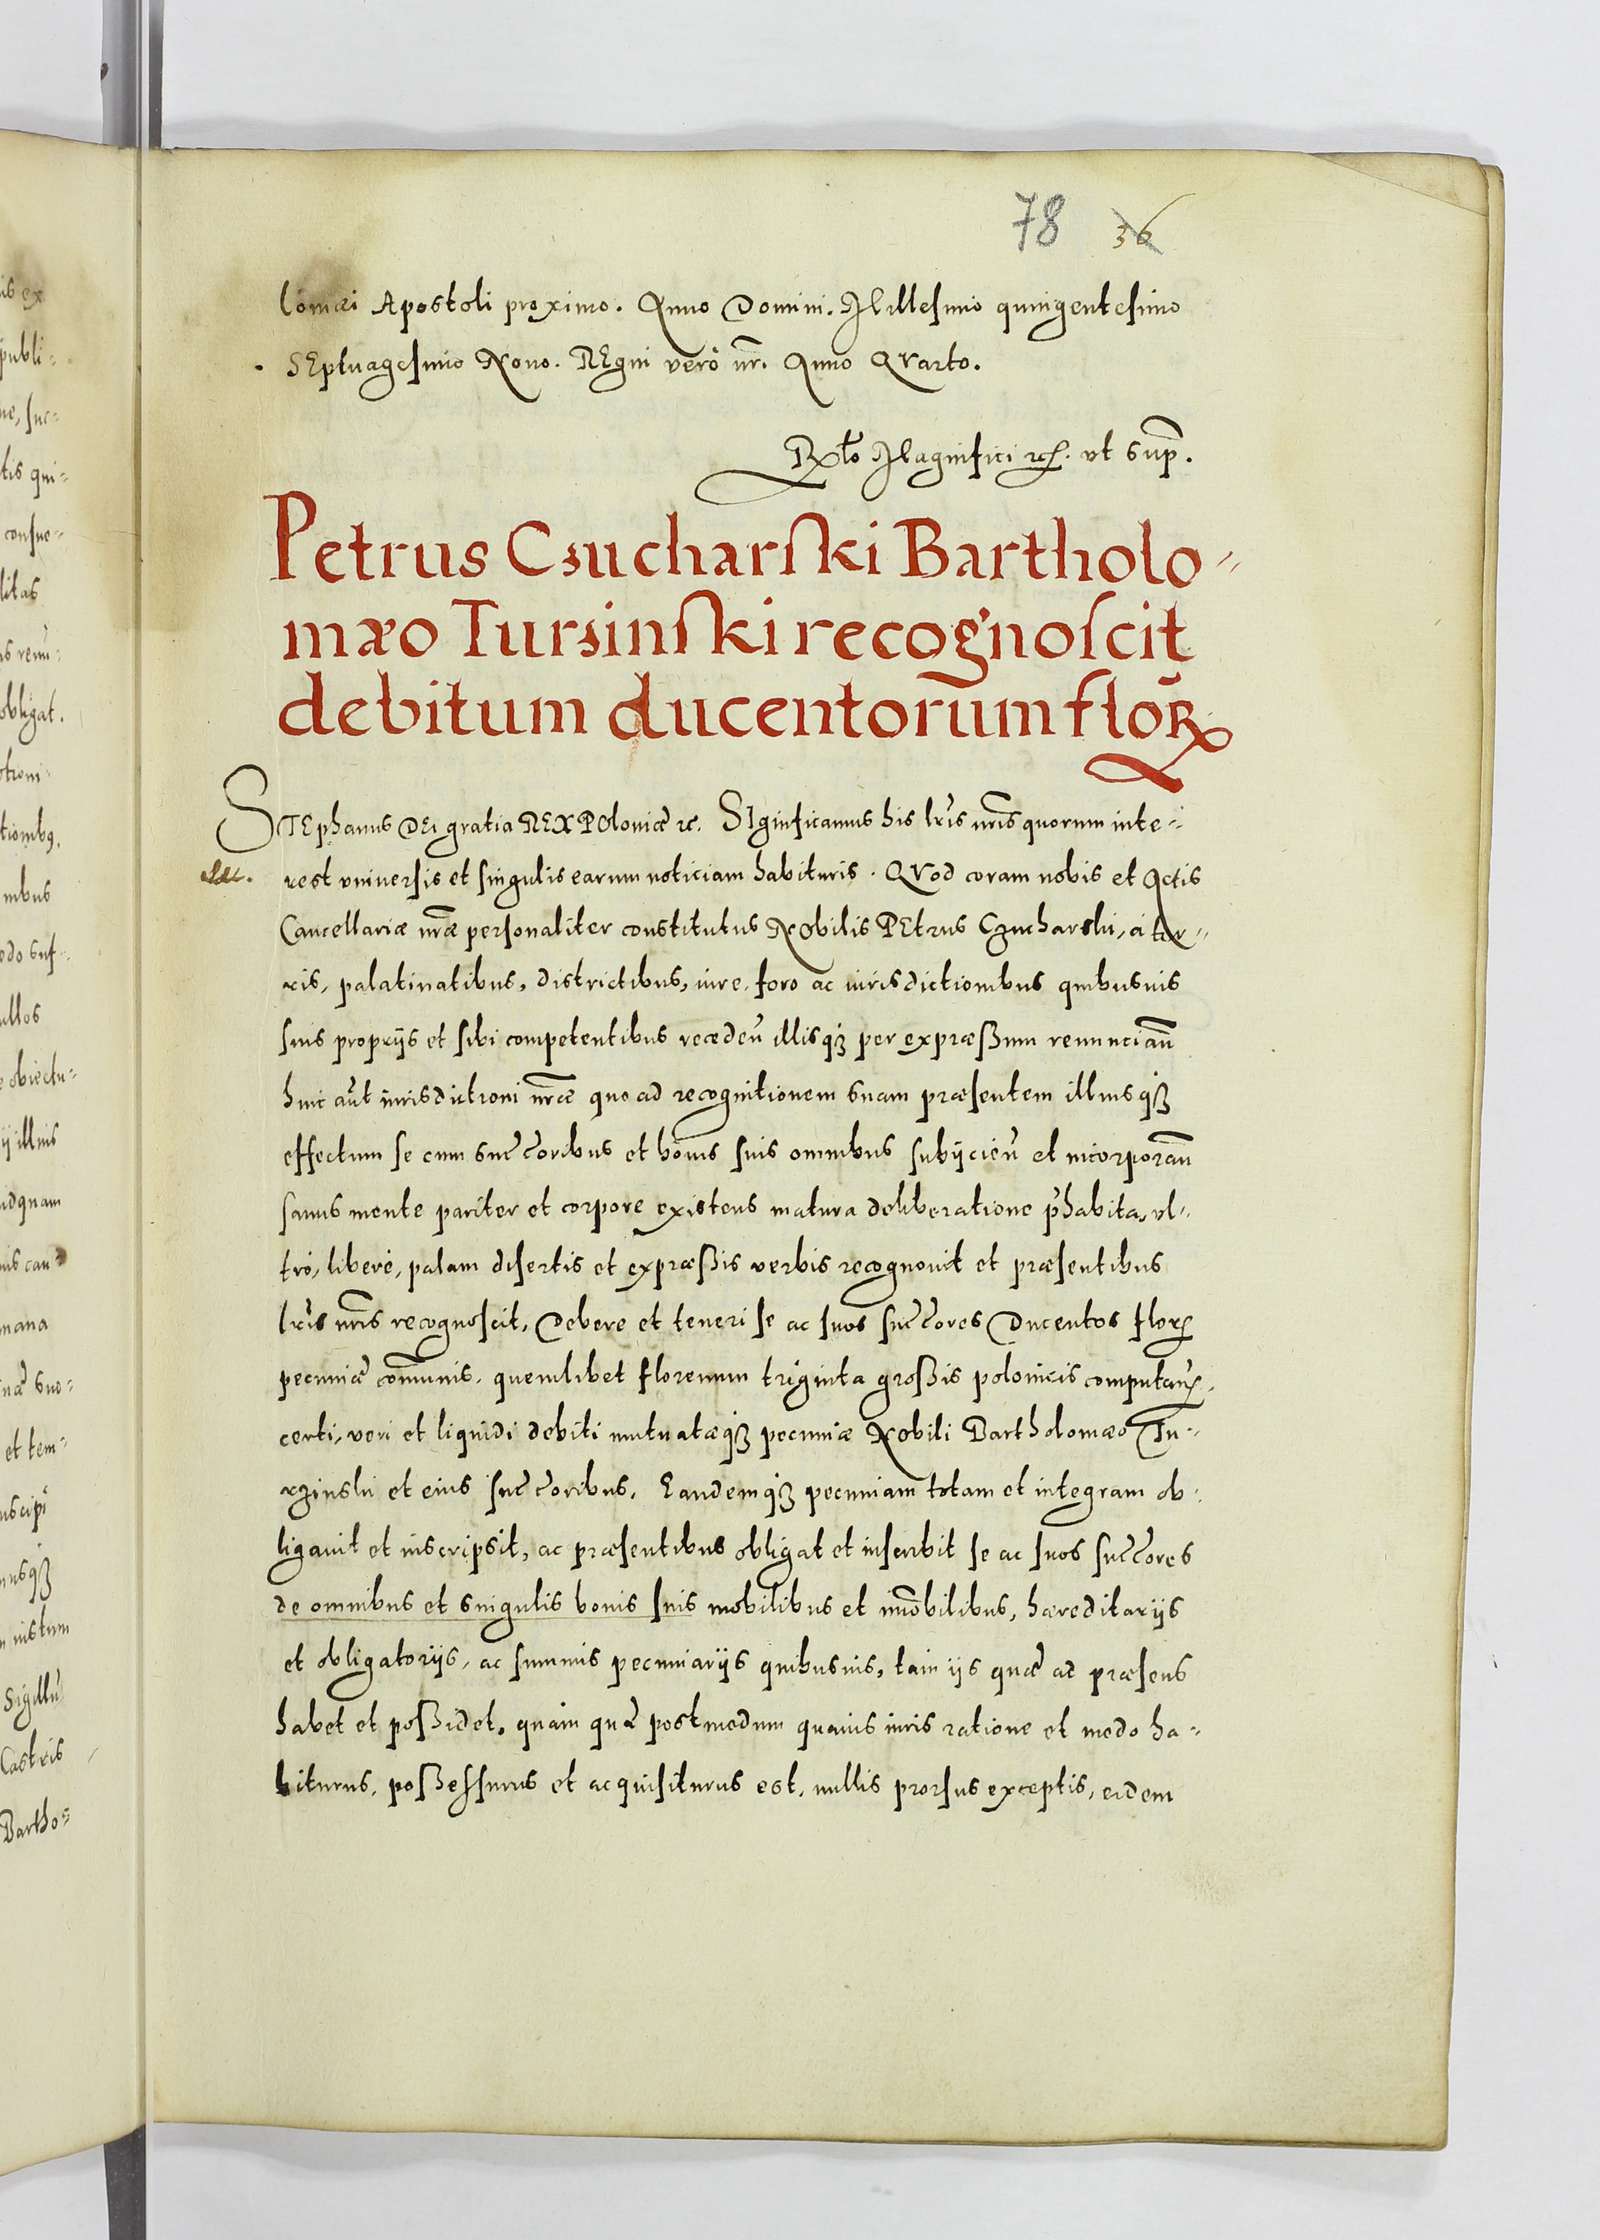 78 36
lomæi Apostoli proximo. Anno Domini. Millesimo quingentesimo
SEptuagesimo Nono. REgni verò nr̃i. Anno QVarto.
Rl̃o Magnifici etc. vt sup̃.
Petrus Czucharski Bartholo-
mæo Turzinski recognoscit
debitum ducentorum flor̃
STEphanus DEi gratia REX POloniæ etc. SIgnificamus his lr̃is nr̃is quorum inte-
rest vniuersis et singulis earum noticiam habituris. QVod coram nobis et Actis
Cancellariæ nr̃æ personaliter constitutus NObilis PEtrus Czucharski, à ter-
ris, palatinatibus, districtibus, iure, foro ac iurisdictionibus quibusuis
suis proprijs et sibi competentibus recedeñ illisq́3 per expræßum renunciañ
huic aũt iurisdictioni nr̃æ quo ad recognitionem suam præsentem illiusq́3
effectum se cum succ̃oribus et bonis suis omnibus subijcieñ et incorporañ
sanus mente pariter et corpore existens matura deliberatione p̃habita, vl-
trò, liberè, palam disertis et expræßis verbis recognouit et præsentibus
lr̃is nr̃is recognoscit, Debere et teneri se ac suos succ̃ores Ducentos flor̃
pecuniæ com̃unis, quemlibet florenum triginta großis polonicis computañ,
certi, veri et liquidi debiti mutuatæq́3 pecuniæ Nobili Bartholomæo Tu-
rzinski et eius succ̃oribus, Eandemq́3 pecuniam totam et integram ob-
ligauit et inscripsit, ac præsentibus obligat et inscribit se ac suos succ̃ores
de omnibus et singulis bonis suis mobilibus et im̃obilibus, hæreditarijs
et obligatorijs, ac summis pecuniarijs quibusuis, tam ijs quæ ad præsens
habet et poßidet, quàm quæ postmodum quauis iuris ratione et modo ha-
biturus, poßessurus et acquisiturus est, nullis prorsus exceptis, eidem